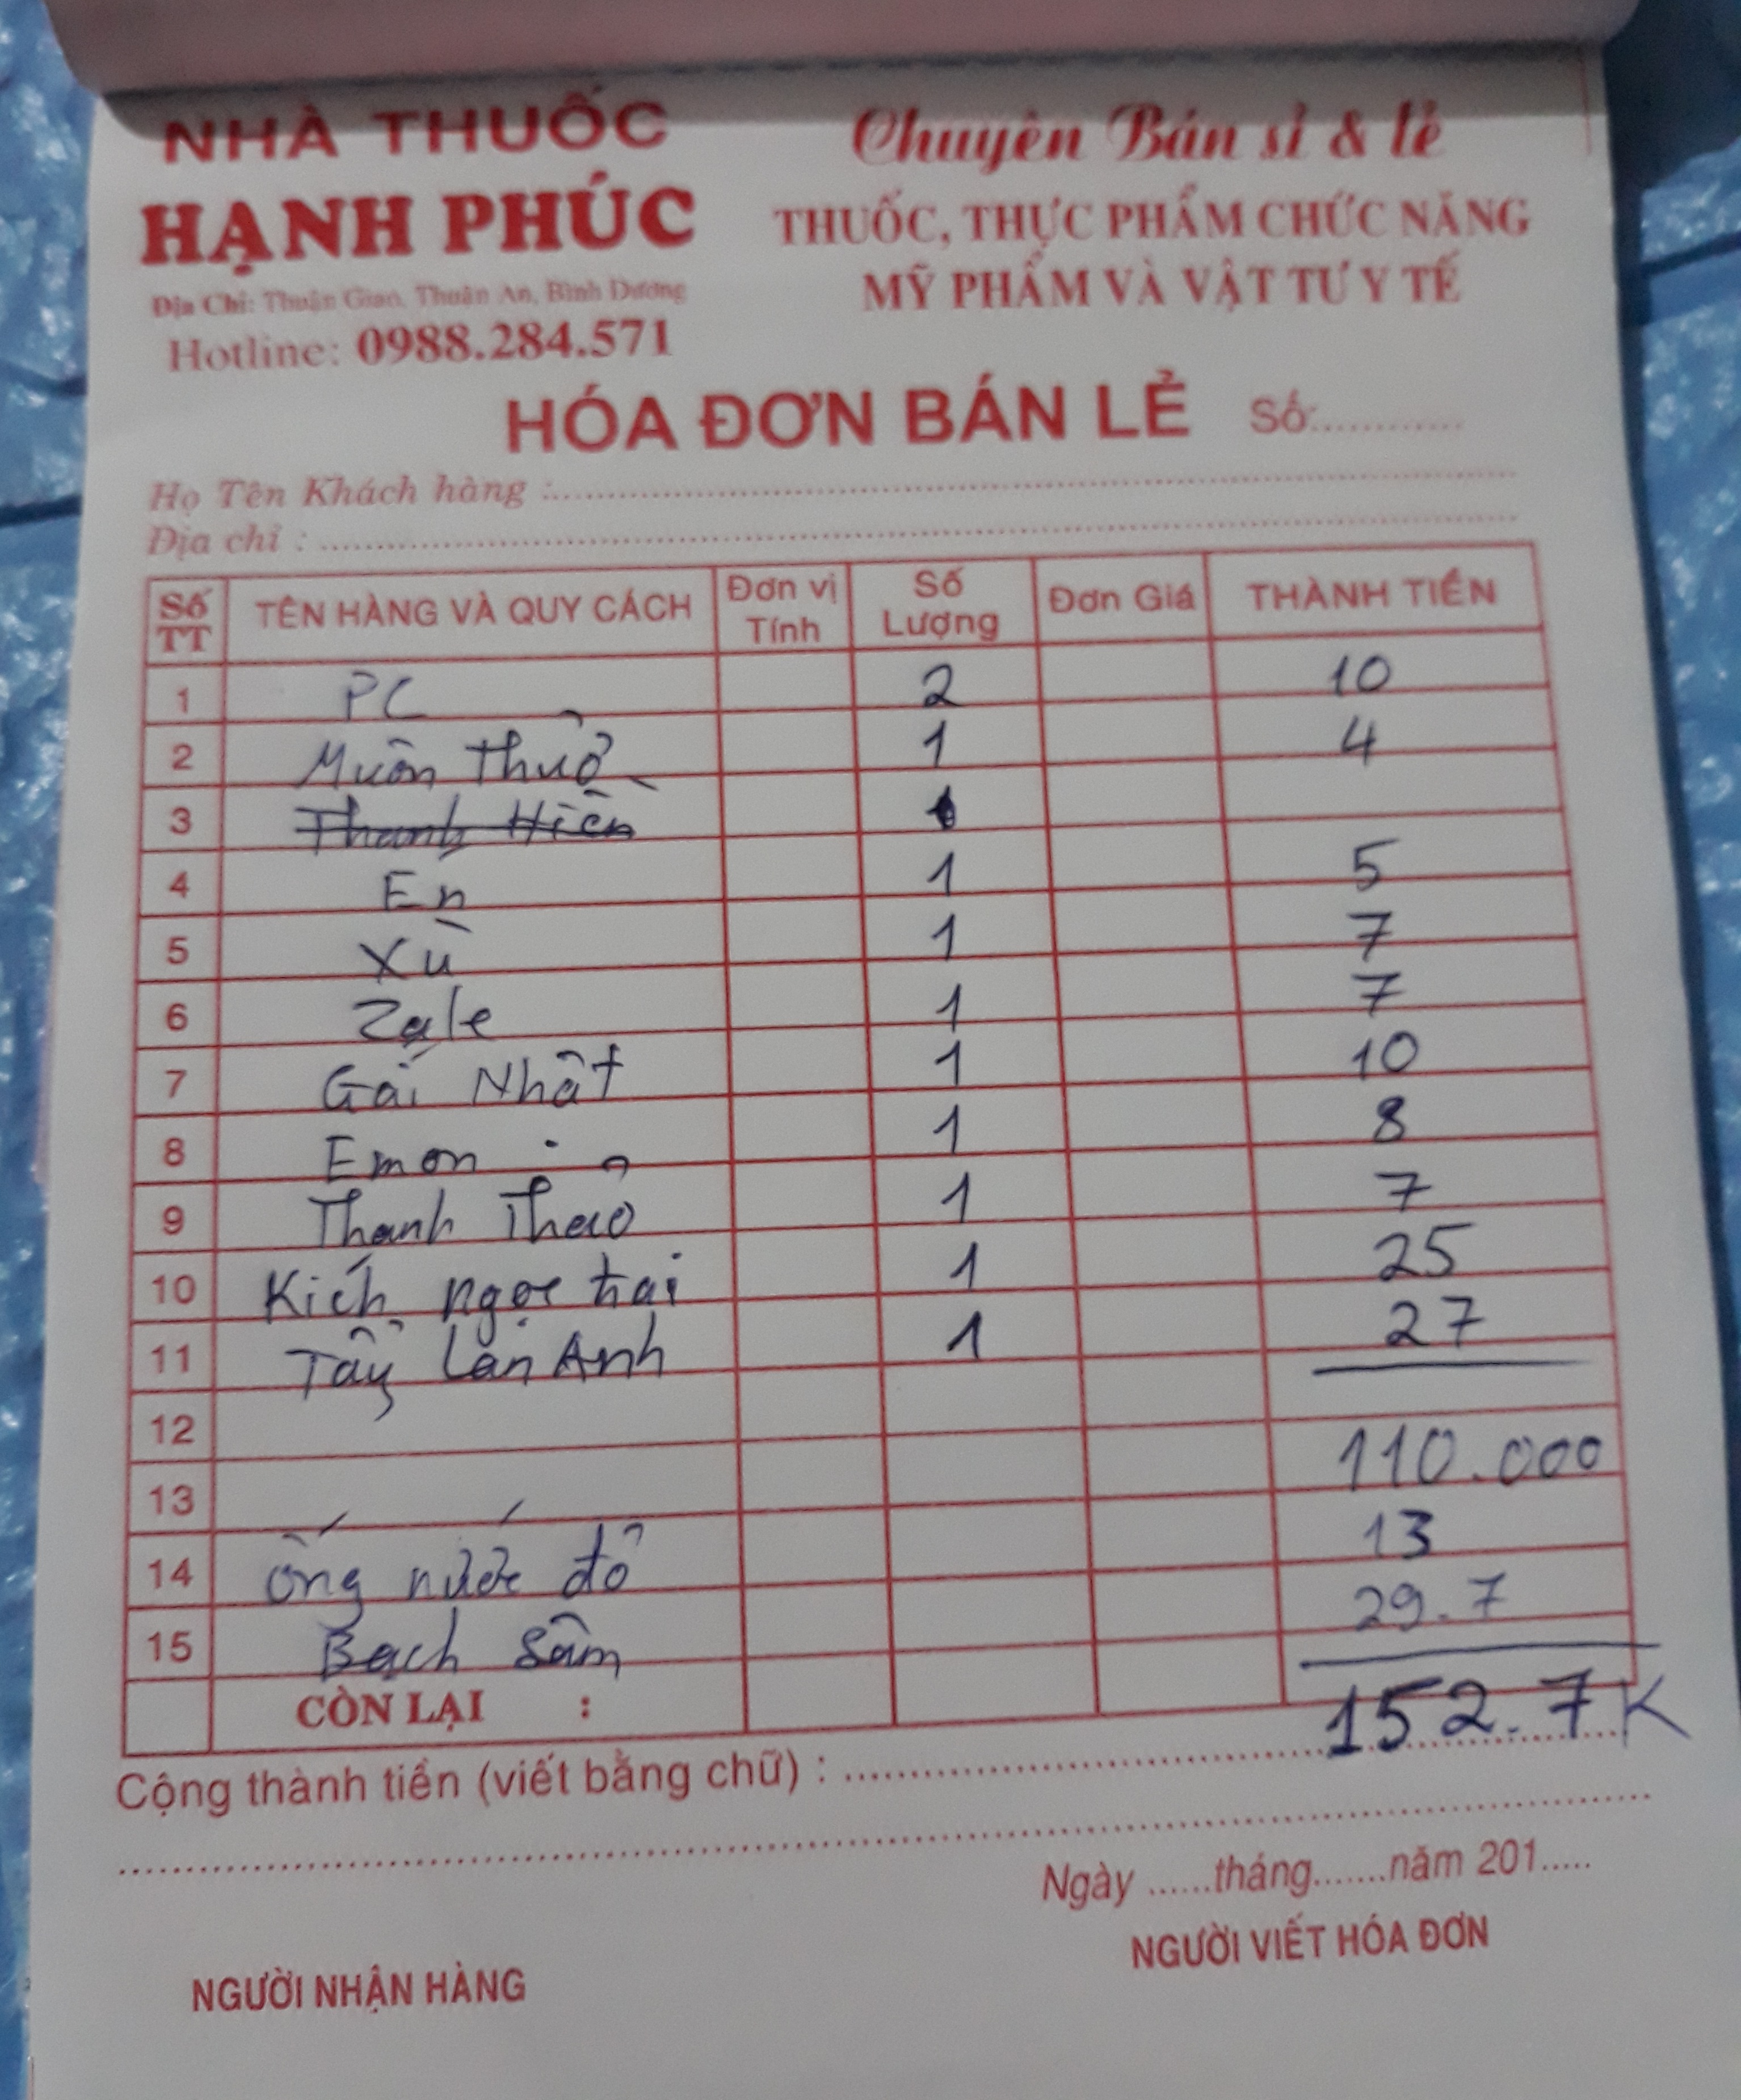 NHÀ THUỐC
HẠNH PHÚC
Địa Chỉ: Thuận Giao, Thuận An, Bình Dương
Hotline: 0988.284.571
Chuyên Bán sỉ & lẻ
THUỐC, THỰC PHẨM CHỨC NĂNG
MỸ PHẨM VÀ VẬT TƯ Y TẾ
HÓA ĐƠN BÁN LẺ Số:............
Họ Tên Khách hàng :
Địa chỉ :
Số TT TÊN HÀNG VÀ QUY CÁCH Đơn vị Tính Số Lượng Đơn Giá THÀNH TIỀN
1 PC 2 10
2 Muôn Thuở 1 4
3 Thanh Hiền
4 En 1 5
5 Xù 1 7
6 Zale 1 7
7 Gái Nhật 1 10
8 Emon 1 8
9 Thanh Thảo 1 7
10 Kích ngọc trai 1 25
11 Tẩy Lan Anh 1 27
12 110.000
13
14 ống nước đỏ 13
15 Bạch Sâm 29.7
CÒN LẠI : 152.7K
Cộng thành tiền (viết bằng chữ) :
Ngày ......tháng.......năm 201.....
NGƯỜI NHẬN HÀNG NGƯỜI VIẾT HÓA ĐƠN